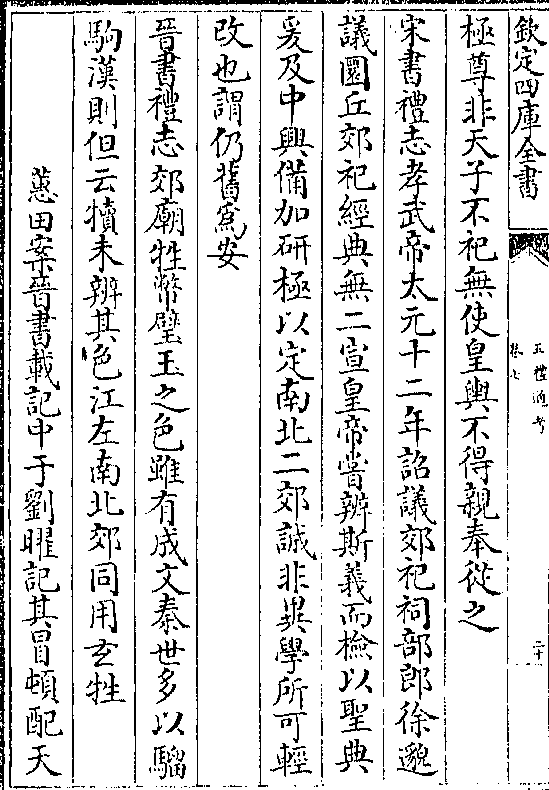 欽定四庫全書
五禮通考
卷七
二十
極尊非天子不祀無使皇輿不得親奉從之
宋書禮志孝武帝太元十二年詔議郊祀祠部郎徐邈
議圜丘郊祀經典無二宣皇帝嘗辨斯義而檢以聖典
爰及中興備加研極以定南北二郊誠非異學所可輕
改也謂仍舊爲安
晉書禮志郊廟牲幣璧玉之色雖有成文秦世多以騮
駒漢則但云犢未辨其色江左南北郊同用玄牲
蕙田案晉書載記中于劉曜記其冒頓配天